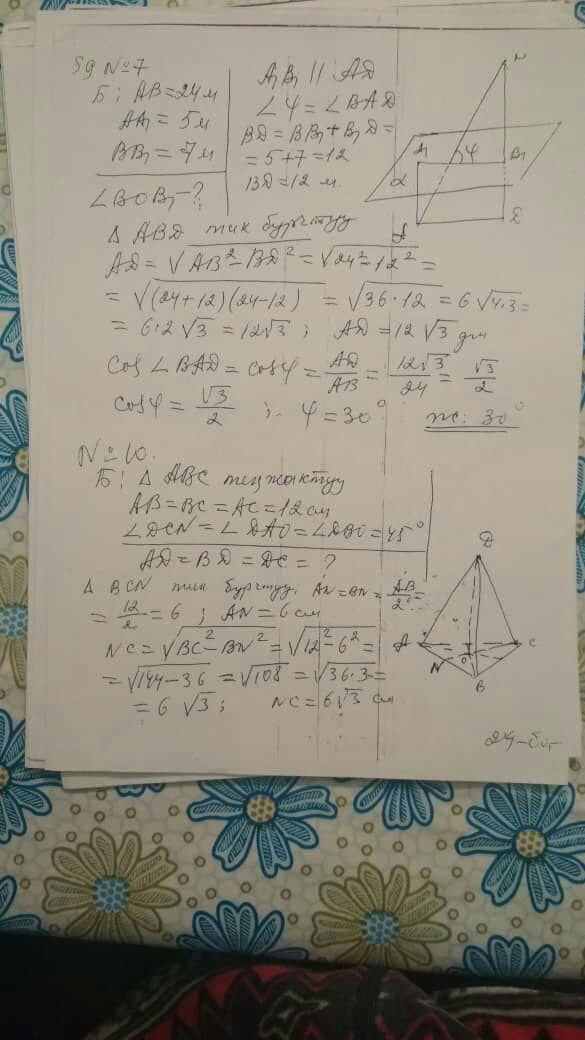 §9 №7
Б: AB=24м
AA₁=5м
BB₁=7м
∠BOB₁-?
A₁B₁ || AD
∠φ=∠BAD
BD=BB₁+B₁D=
=5+7=12
BD=12 м.
A₁
φ
B₁
α
A
D
△ ABD тик бурчтуу
AD=√AB²-BD²=√24²-12²=
=√(24+12)(24-12)=√36·12=6√4·3=
=6·2√3=12√3; AD=12√3 дм
cos∠BAD=cosφ=AD/AB=12√3/24=√3/2
cosφ=√3/2; φ=30° ж: 30°
№10.
Б: △ ABC тең жактуу
AB=BC=AC=12см
∠DCN=∠DAO=∠DBO=45°
AD=BD=DC=?
△ BCN тик бурчтуу. AN=BN=AB/2=
=12/2=6; AN=6см
NC=√BC²-BN²=√12²-6²=
=√144-36=√108=√36·3=
=6√3; NC=6√3 см
D
A
C
N
O
B